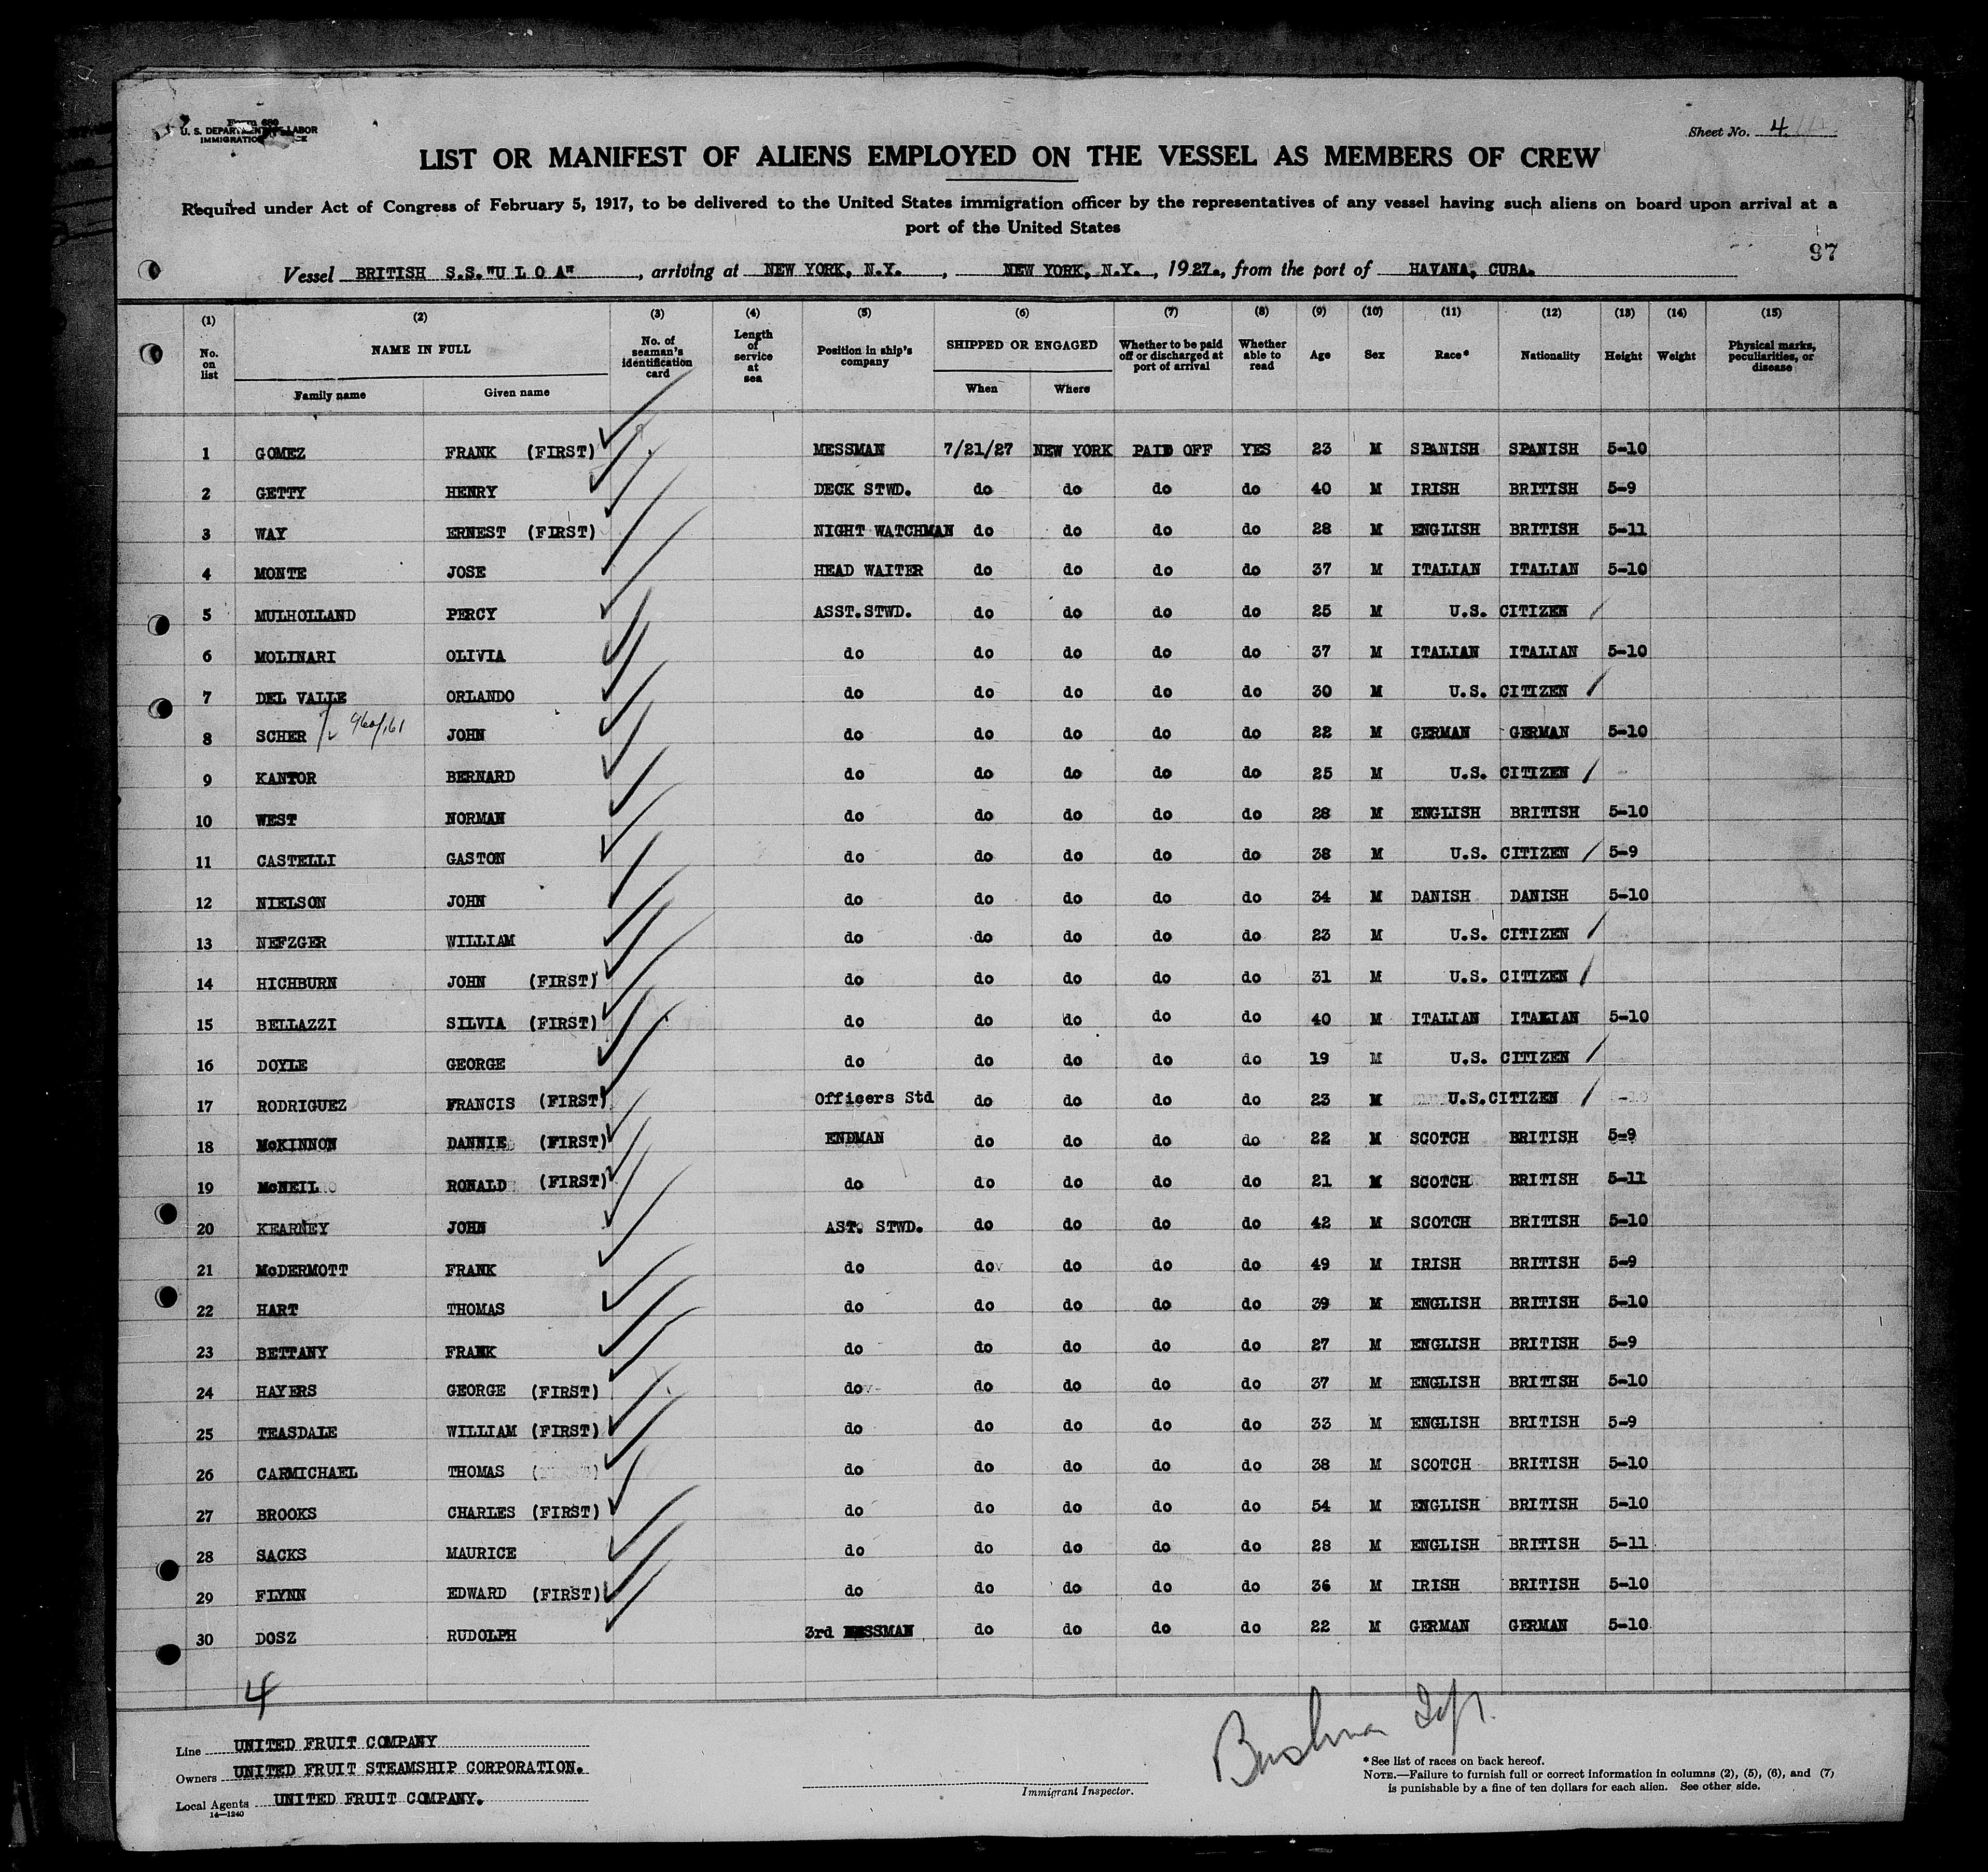 Form 680
U. S. DEPARTMENT OF LABOR
IMMIGRATION
Sheet No. 4
LIST OR MANIFEST OF ALIENS EMPLOYED ON THE VESSEL AS MEMBERS OF CREW
Required under Act of Congress of February 5, 1917, to be delivered to the United States immigration officer by the representatives of any vessel having such aliens on board upon arrival at a
port of the United States
97
Vessel BRITISH S.S."U L O A", arriving at NEW YORK, N.Y., NEW YORK, N.Y., 1927., from the port of HAVANA, CUBA.
(1) (2) (3) (4) (5) (6) (7) (8) (9) (10) (11) (12) (13) (14) (15)
No. on list NAME IN FULL No. of seaman's identification card Length of service at sea Position in ship's company SHIPPED OR ENGAGED Whether to be paid off or discharged at port of arrival Whether able to read Age Sex Race* Nationality Height Weight Physical marks, peculiarities, or disease
Family name Given name When Where
1 GOMEZ FRANK (FIRST) MESSMAN 7/21/27 NEW YORK PAID OFF YES 23 M SPANISH SPANISH 5-10
2 GETTY HENRY DECK STWD. do do do do 40 M IRISH BRITISH 5-9
3 WAY ERNEST (FIRST) NIGHT WATCHMAN do do do do 28 M ENGLISH BRITISH 5-11
4 MONTE JOSE HEAD WAITER do do do do 37 M ITALIAN ITALIAN 5-10
5 MULHOLLAND PERCY ASST.STWD. do do do do 25 M U.S. CITIZEN
6 MOLINARI OLIVIA do do do do do 37 M ITALIAN ITALIAN 5-10
7 DEL VALLE ORLANDO do do do do do 30 M U.S. CITIZEN
8 SCHER 960/161 JOHN do do do do do 22 M GERMAN GERMAN 5-10
9 KANTOR BERNARD do do do do do 25 M U.S. CITIZEN
10 WEST NORMAN do do do do do 28 M ENGLISH BRITISH 5-10
11 CASTELLI GASTON do do do do do 38 M U.S. CITIZEN 5-9
12 NIELSON JOHN do do do do do 34 M DANISH DANISH 5-10
13 NEFZGER WILLIAM do do do do do 23 M U.S. CITIZEN
14 HICHBURN JOHN (FIRST) do do do do do 31 M U.S. CITIZEN
15 BELLAZZI SILVIA (FIRST) do do do do do 40 M ITALIAN ITALIAN 5-10
16 DOYLE GEORGE do do do do do 19 M U.S. CITIZEN
17 RODRIGUEZ FRANCIS (FIRST) Officers Std do do do do 23 M U.S.CITIZEN
18 McKINNON DANNIE (FIRST) ENDMAN do do do do 22 M SCOTCH BRITISH 5-9
19 McNEIL RONALD (FIRST) do do do do do 21 M SCOTCH BRITISH 5-11
20 KEARNEY JOHN AST. STWD. do do do do 42 M SCOTCH BRITISH 5-10
21 McDERMOTT FRANK do do do do do 49 M IRISH BRITISH 5-9
22 HART THOMAS do do do do do 39 M ENGLISH BRITISH 5-10
23 BETTANY FRANK do do do do do 27 M ENGLISH BRITISH 5-9
24 HAYERS GEORGE (FIRST) do do do do do 37 M ENGLISH BRITISH 5-10
25 TEASDALE WILLIAM (FIRST) do do do do do 33 M ENGLISH BRITISH 5-9
26 CARMICHAEL THOMAS do do do do do 38 M SCOTCH BRITISH 5-10
27 BROOKS CHARLES (FIRST) do do do do do 54 M ENGLISH BRITISH 5-10
28 SACKS MAURICE do do do do do 28 M ENGLISH BRITISH 5-11
29 FLYNN EDWARD (FIRST) do do do do do 36 M IRISH BRITISH 5-10
30 DOSZ RUDOLPH 3rd MESSMAN do do do do 22 M GERMAN GERMAN 5-10
4
Line UNITED FRUIT COMPANY
Owners UNITED FRUIT STEAMSHIP CORPORATION.
Local Agents UNITED FRUIT COMPANY.
14—1240
Immigrant Inspector.
*See list of races on back hereof.
NOTE.—Failure to furnish full or correct information in columns (2), (5), (6), and (7)
is punishable by a fine of ten dollars for each alien. See other side.